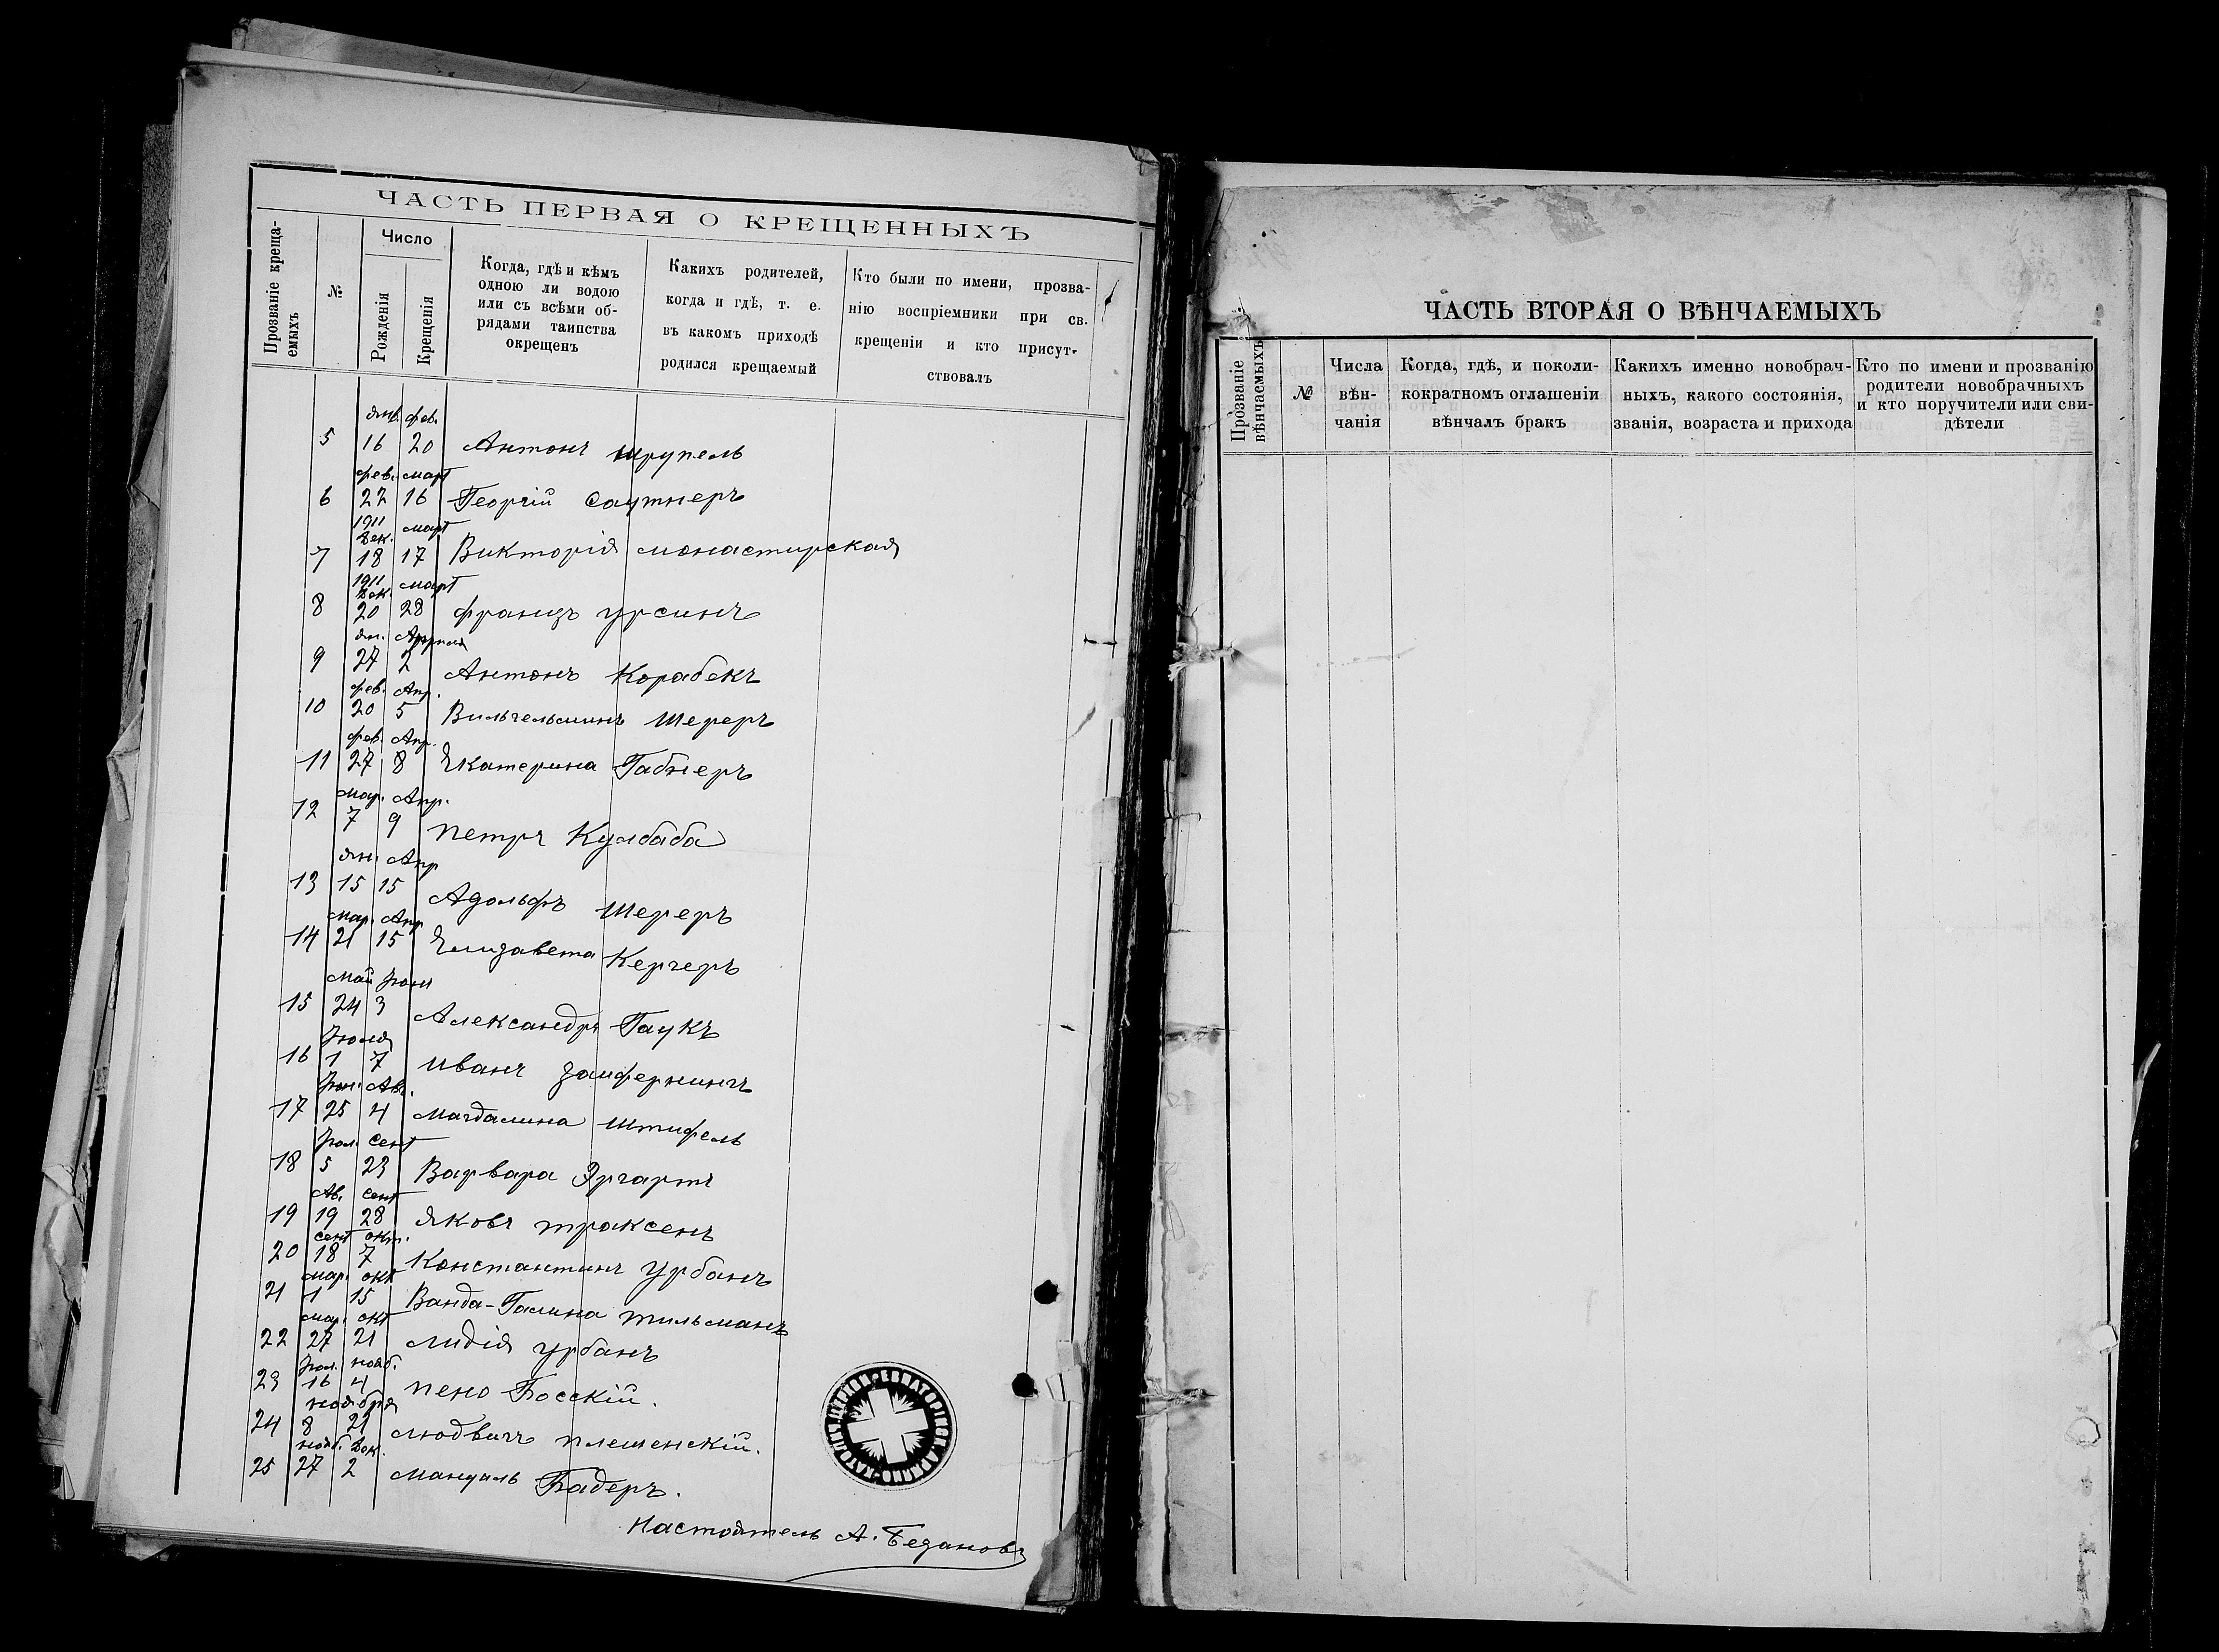 ЧАСТЬ ПЕРВАЯ О КРЕЩЕННЫХЪ
Прозваніе креща-
емыхъ
№
Число
Рожденія
Крещенія
Когда, гдѣ и кѣмъ
одною ли водою
или съ всѣми об-
рядами таинства
окрещенъ
Какихъ родителей,
когда и гдѣ, т. е.
въ какомъ приходѣ
родился крещаемый
Кто были по имени, прозва-
нію воспріемники при св.
крещеніи и кто присут-
ствовалъ
янв. фев.
5 16 20 Антонъ Шрупель
фев. март
6 22 16 Георгій Саутнеръ
1911
Дек. март
7 18 17 Викторія Монастирская
1911
Дек. март
8 20 28 Францъ Урсинъ
ян. Апреля
9 27 2 Антонъ Корабекъ
фев. Апр.
10 20 5 Вильгельминъ Шереръ
фев. Апр.
11 27 8 Екатерина Габнеръ
мар. Апр.
12 7 9 Петръ Кулбаба
ян. Апр
13 15 15 Адольфъ Шереръ
мар. Апр
14 21 15 Елизавета Керчеръ
май Іюня
15 24 3 Александръ Гаукъ
Іюля
16 1 7 Иванъ
Іюн. Ав.
17 25 4 Магдалина Штифель
Іюл. Сент
18 5 23 Варвара Эргартъ
Ав. Сент
19 19 28 Яковъ Траксенъ
сент окт.
20 18 7 Константинъ Урбанъ
мар. окт
21 1 15 Ванда-Галина Тильманъ
мар. окт
22 27 21 Лидія Урбанъ
Іюл. нояб.
23 16 4 Пено Босскій.
ноября
24 8 21 Людвигъ Плешенскій.
нояб. Дек.
25 27 2 Мануиль Бадеръ.
Настоятель А. Безановъ
ЧАСТЬ ВТОРАЯ О ВѢНЧАЕМЫХЪ
Прозваніе
вѣнчаемыхъ
№
Числа
вѣн-
чанія
Когда, гдѣ, и поколи-
кократномъ оглашеніи
вѣнчалъ бракъ
Какихъ именно новобрач-
ныхъ, какого состоянія,
званія, возраста и прихода
Кто по имени и прозванію
родители новобрачныхъ
и кто поручители или сви-
дѣтели